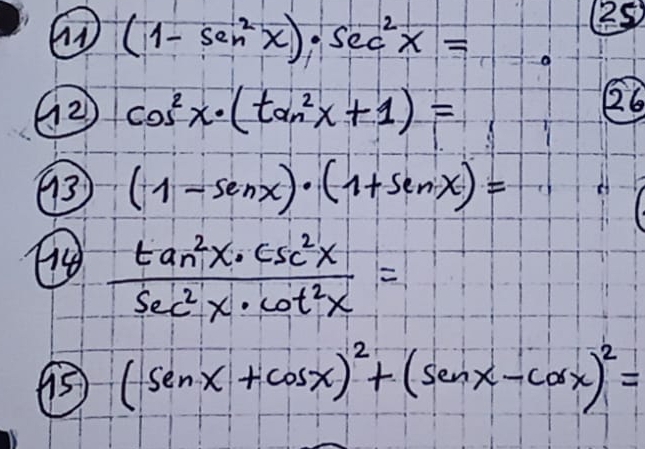 11 (1 - sen²x) · sec²x =
25
12 cos²x · (tan²x + 1) =
26
13 (1 - senx) · (1 + senx) =
14 tan²x · csc²x
sec²x · cot²x =
15 (senx + cosx)² + (senx - cosx)² =